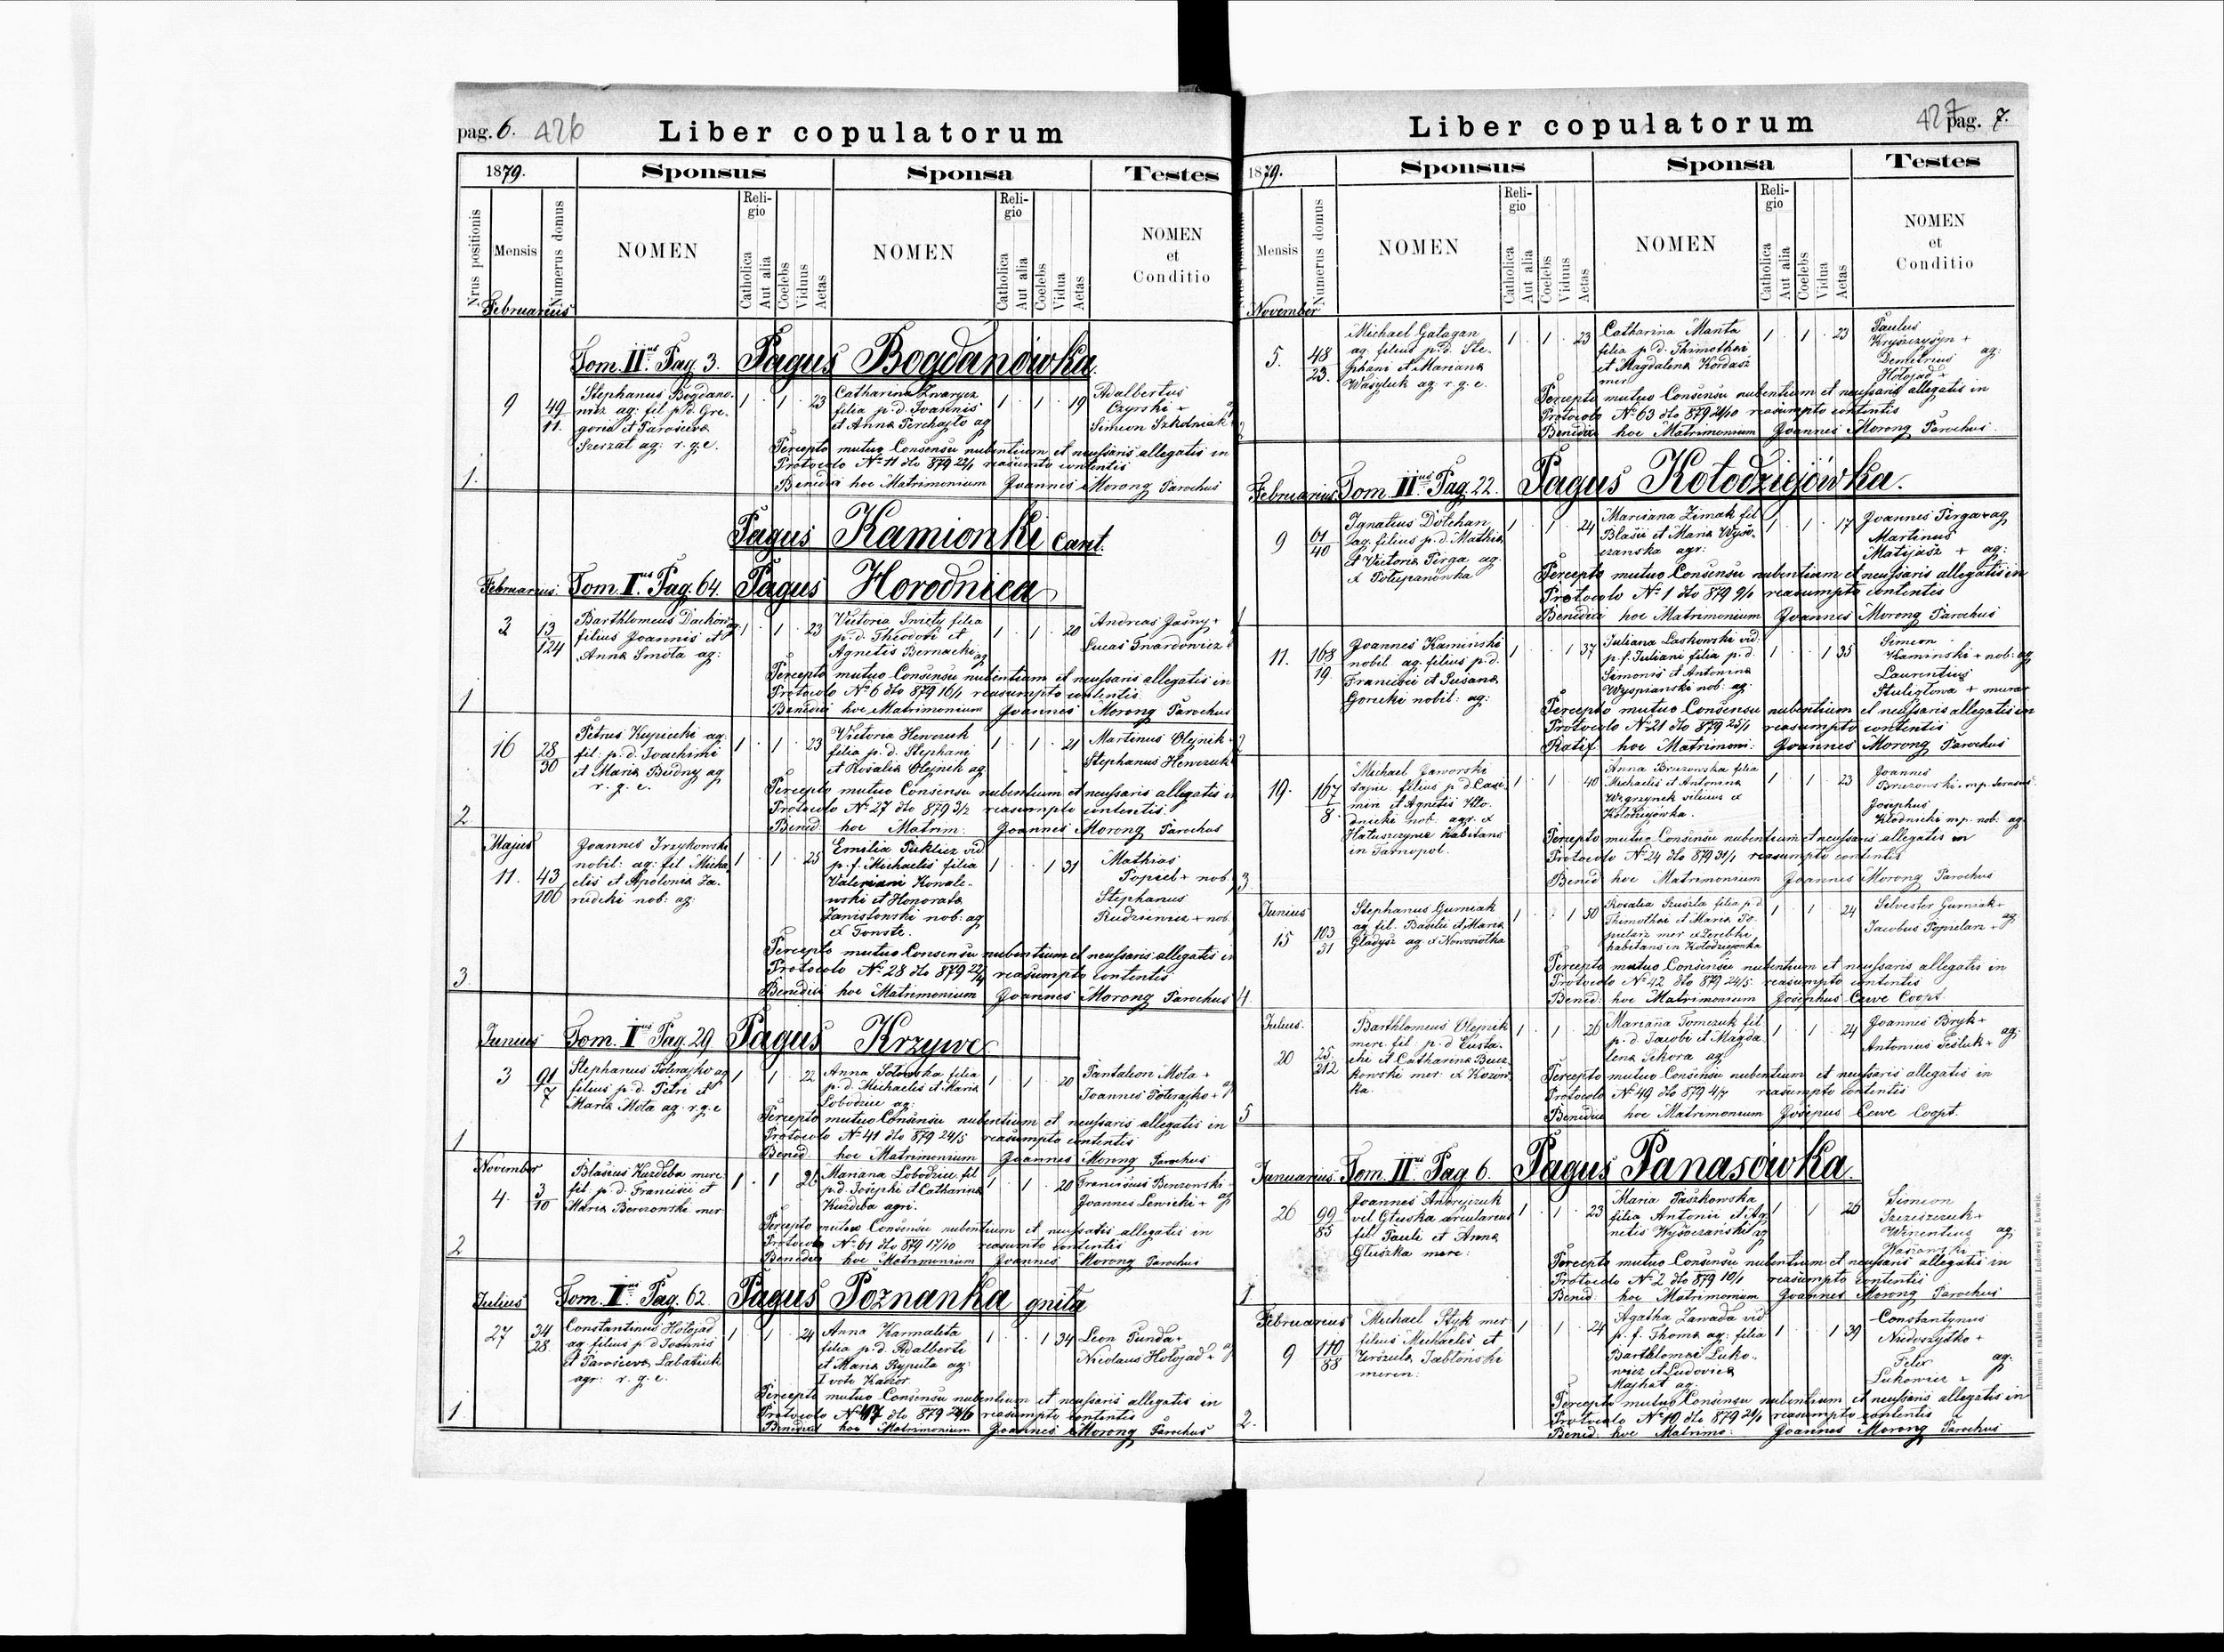 pag. 6. 426
Liber copulatorum
1879.
Sponsus
Sponsa
Testes
Nrus positionis
Mensis
Numerus domus
NOMEN
Religio
Catholica
Aut alia
Coelebs
Viduus
Aetas
NOMEN
Religio
Catholica
Aut alia
Coelebs
Vidua
Aetas
NOMEN
et
Conditio
Februarius
Tom. II us Pag. 3. Pagus Bogdanówka.
1.
9
49
11.
Stephanus Bogdano-
wicz ag: fil p.d. Gre-
gorii et Paraxeva
Szerszat ag: r.g.c.
1 1 23
Catharina Zwarycz
filia p.d. Joannis
et Anna Perchajło ag
1 1 19
Adalbertus
Czyrski +
Simeon Szkolniak
Percepto mutuo Consensu nubentium et neussaris allegatis in
Protocolo No 11 dto 879 22/1 reasumto contentis
Benedixi hoc Matrimonium Joannes Morong Parochus
Pagus Kamionki cant.
Februarius. Tom. I us Pag. 64. Pagus Horodnica
1
2
13
124
Barthlomeus Dackow ag:
filius Joannis et
Anna Smota ag:
1 1 23
Victoria Swiety filia
p.d. Theodori et
Agnetis Bernacki ag
1 1 20
Andreas Jasny +
Lucas Twardowicz
Percepto mutuo Consensu nubentium et neussaris allegatis in
Protocolo No 6 dto 879 16/1 reasumpto contentis
Benedixi hoc Matrimonium Joannes Morong Parochus
2
16
28
30
Petrus Kupiecki ag.
fil: p.d. Joachimi
et Maria Budny ag
r. g. c.
1 1 23
Victoria Hewczuk
filia p. d. Stephani
et Rosalia Olejnik ag
1 1 21
Martinus Olejnik +
Stephanus Hewczuk
Percepto mutuo Consensu nubentium et neussaris allegatis in
Protocolo No 27 dto 879 3/2 reasumpto contentis
Bened: hoc Matrim: Joannes Morong Parochus
3
Majus
11.
43
106
Joannes Irzykowski
nobil: ag: fil. Micha-
elis et Apolonia Za-
rudzki nob: ag:
1 1 25
Emilia Puklicz vid
p. f. Michaelis filia
Valeriani Kowale-
wski et Honorata
Janisłowski nob: ag
ex Touste.
1 1 31
Mathias
Popiel + nob.
Stephanus
Rudzewicz + nob.
Percepto mutuo Consensu nubentium et neussaris allegatis in
Protocolo No 28 dto 879 22/4 reasumpto contentis
Benedixi hoc Matrimonium Joannes Morong Parochus
Junius Tom. I us Pag. 29 Pagus Krzywe
1
3
91
7
Stephanus Poterajko ag
filius p.d. Petri et
Maria Mota ag. r.g.c
1 1 22
Anna Sotowka filia
p.d. Michaelis et Maria
Łobodziec ag:
1 1 20
Pantaleon Mota +
Joannes Poterajko + ag
Percepto mutuo Consensu nubentium et neussaris allegatis in
Protocolo No 41 dto 879 24/5 reasumpto contentis
Bened: hoc Matrimonium Joannes Morong Parochus
2
November
4.
3
10
Blasius Kuzdeba merc:
fil: p.d. Francisci et
Maria Berezowski mer
1 1 26
Mariana Łobodziec fil.
p.d. Josephi et Catharina
Kuzdeba agri.
1 1 20
Franciscus Benzowski
Joannes Lewicki + ag
Percepto mutuo Consensu nubentium et neussatis allegatis in
Protocolo No 61 dto 879 17/10 reasumto contentis
Benedixi hoc Matrimonium Joannes Morong Parochus
Julius Tom. I us Pag. 62 Pagus Poznanka gniła
1
27
34
28
Constantinus Hołojad
ag. filius p.d Joannis
et Paraxieva Łabatiuk
agr: r. g. c.
1 1 24
Anna Karmalita
filia p.d. Adalberti
et Maria Rypula ag:
I voto Kaczor
1 1 34
Leon Punda +
Nicolaus Hołojad + ag
Percepto mutuo Consensu nubentium et neussaris allegatis in
Protocolo No 47 dto 879 24/6 reasumpto contentis
Benedixi hoc Matrimonium Joannes Morong Parochus
Liber copulatorum
427 pag. 7.
1879.
Sponsus
Sponsa
Testes
Mensis
Numerus domus
NOMEN
Religio
Catholica
Aut alia
Coelebs
Viduus
Aetas
NOMEN
Religio
Catholica
Aut alia
Coelebs
Vidua
Aetas
NOMEN
et
Conditio
November
2
5.
48
23.
Michael Gałagan
ag. filius p.d. Ste-
phani et Mariana
Wasyluk ag r. g. c.
1 1 23
Catharina Manta
filia p. d. Thimothei
et Magdalena Kordasz
mer
1 1 23
Paulus
Kryszczyszyn +
Demetrius ag:
Hołojad +
Percepto mutuo Consensu nubentium et neussaris allegatis in
Protocolo No 63 dto 879 24/10 reasumpto contentis
Benedixi hoc Matrimonium Joannes Morong Parochus.
Februarius. Tom. II us Pag. 22. Pagus Kołodziejówka.
1
9
61
40
Ignatius Dolchan
ag. filius p.d. Mathia
et Victoria Perga ag.
ex Połupanówka
1 1 24
Marciana Zimak fil
Blasii et Maria Wyso-
czanska agr:
1 1 17
Joannes Pirga + ag
Martinus
Matijasz + ag:
Percepto mutuo Consensu nubentium et neussaris allegatis in
Protocolo No 1 dto 879 9/1 reasumpto contentis
Benedixi hoc Matrimonium Joannes Morong Parochus
2
11.
168
19.
Joannes Kaminski
nobil. ag. filius p.d.
Francisci et Susana
Gorecki nobil: ag:
1 1 37
Juliana Laskowski vid:
p. f. Juliani filia p.d.
Simonis et Antonina
Wyspianski nob: ag:
1 1 35
Simeon
Kaminski + nob: ag
Laurentius
Stuległowa + murar
Percepto mutuo Consensu nubentium et neussaris allegatis in
Protocolo No 21 dto 879 25/1 reasumpto contentis
Ratif: hoc Matrimoni: Joannes Morong Parochus
3
19.
167
8.
Michael Jaworski
filius p d Casi-
miri et Agnetis Kło-
dnicki nob. agr. ex
Hałuszczyńce habitans
in Tarnopol.
1 1 40
Anna Bruzowska filia
Michaelis et Antonina
Węgrzynek ex
Kołodziejówka.
1 1 23
Joannes
Bruzowski mp.
Josephus
Kłodnicki mp. nob: ag.
Percepto mutuo Consensu nubentium et neussaris allegatis in
Protocolo No 24 dto 879 31/1 reasumpto contentis
Bened: hoc Matrimonium Joannes Morong Parochus
4
Junius
15
103
31
Stephanus Gurniak
ag fil. Basilii et Maria
Gładysz ag ex Nowosiołka
1 1 50
Rosalia Szuszla filia p.d
Thimothei et Maria Po-
pielarz mer ex Zerebki
habitans in Kołodziejówka
1 1 24
Silvester Gurniak +
Jacobus Popielarz + ag
Percepto mutuo Consensu nubentium et neussaris allegatis in
Protocolo No 42 dto 879 24/5 reasumpto contentis
Bened: hoc Matrimonium Josephus Cewe Coopt.
5
Julius.
20
25.
212
Barthlomeus Olejnik
merc fil. p.d Eusta-
chi et Catharina Bucz-
kowski mer. ex Kozow-
ka.
1 1 26
Marianna Tomczuk fil
p. d. Jacobi et Magda-
lena Sikora ag
1 1 24
Joannes Bryk +
Antonius Tesluk + ag:
Percepto mutuo Consensu nubentium et neussaris allegatis in
Protocolo No 49 dto 879 4/7 reasumpto contentis
Benedixi hoc Matrimonium Josepus Cewe Coopt.
Januarius. Tom. II us Pag. 6. Pagus Panasówka.
1
26
99
85
Joannes Andryjczuk
vel Głuska arcularius
fil Pauli et Anna
Głuszka merc:
1 1 23
Maria Paszkowska
filia Antonii et Ag-
netis Wysoczanski ag
1 1 26
Simeon
Szczeszczuk +
Wincentius ag
Waszowski +
Percepto mutuo Consensu nubentium et neussaris allegatis in
Protocolo No 2 dto 879 10/1 reasumpto contentis
Bened: hoc Matrimonium Joannes Morong Parochus
2.
Februarius
9
110
88
Michael Styk mer
filius Michaelis et
Urszula Jabłonski
meren:
1 1 24
Agatha Zawada vid
p. f. Thoma ag: filia
Barthlomei Łuko-
wicz et Ludovica
Majhat ag.
1 1 39
Constantynus
Niedoszydko +
Felix ag.
Łukowicz +
Percepto mutuo Consensu nubentium et neussaris allegatis in
Protocolo No 10 dto 879 21/1 reasumpto contentis
Bened: hoc Matrimo: Joannes Morong Parochus
Drukiem i nakładem drukarni Ludowej we Lwowie.